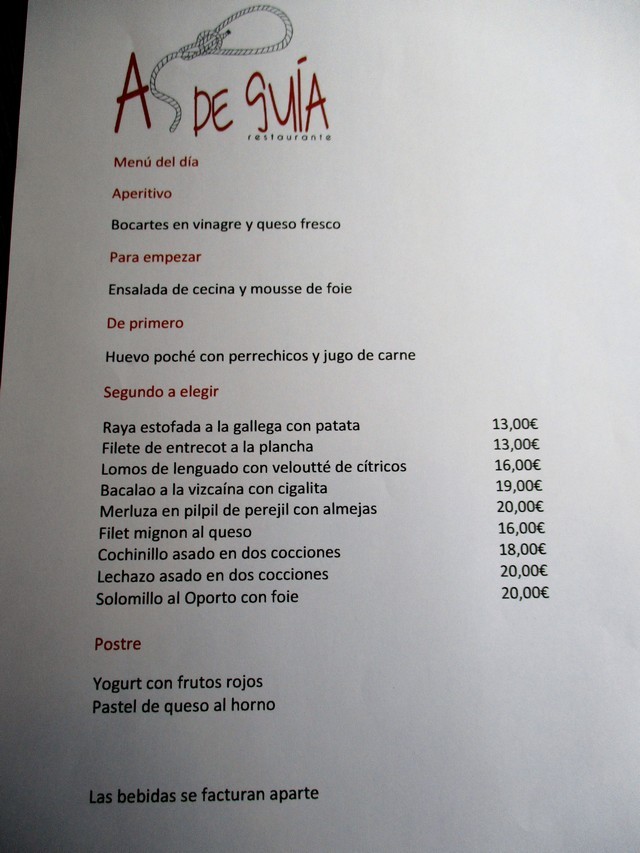 AS DE GUÍA
restaurante
Menú del día
Aperitivo
Bocartes en vinagre y queso fresco
Para empezar
Ensalada de cecina y mousse de foie
De primero
Huevo poché con perrechicos y jugo de carne
Segundo a elegir
Raya estofada a la gallega con patata 13,00€
Filete de entrecot a la plancha 13,00€
Lomos de lenguado con veloutté de cítricos 16,00€
Bacalao a la vizcaína con cigalita 19,00€
Merluza en pilpil de perejil con almejas 20,00€
Filet mignon al queso 16,00€
Cochinillo asado en dos cocciones 18,00€
Lechazo asado en dos cocciones 20,00€
Solomillo al Oporto con foie 20,00€
Postre
Yogurt con frutos rojos
Pastel de queso al horno
Las bebidas se facturan aparte